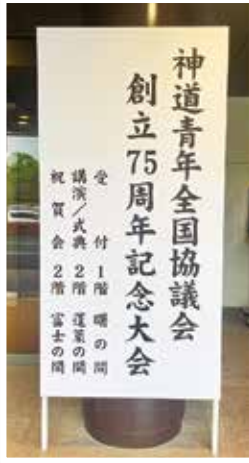 神道青年全国協議会
創立75周年記念大会
受付 1階 曙の間
講演／式典 2階 蓬莱の間
祝賀会 2階 富士の間